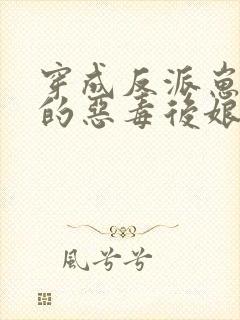 穿成反派崽
的惡毒後娘
風兮兮